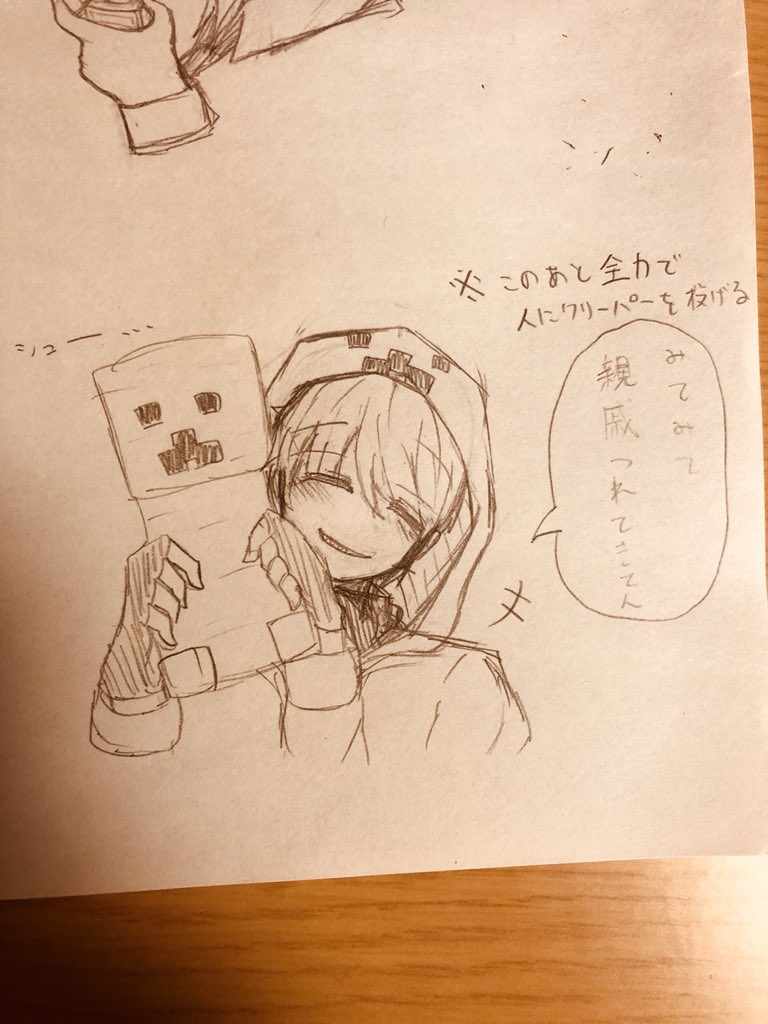 ※このあと全力で
人にクリーパーを投げる
みてみて
親戚つれてきてん
シュー…